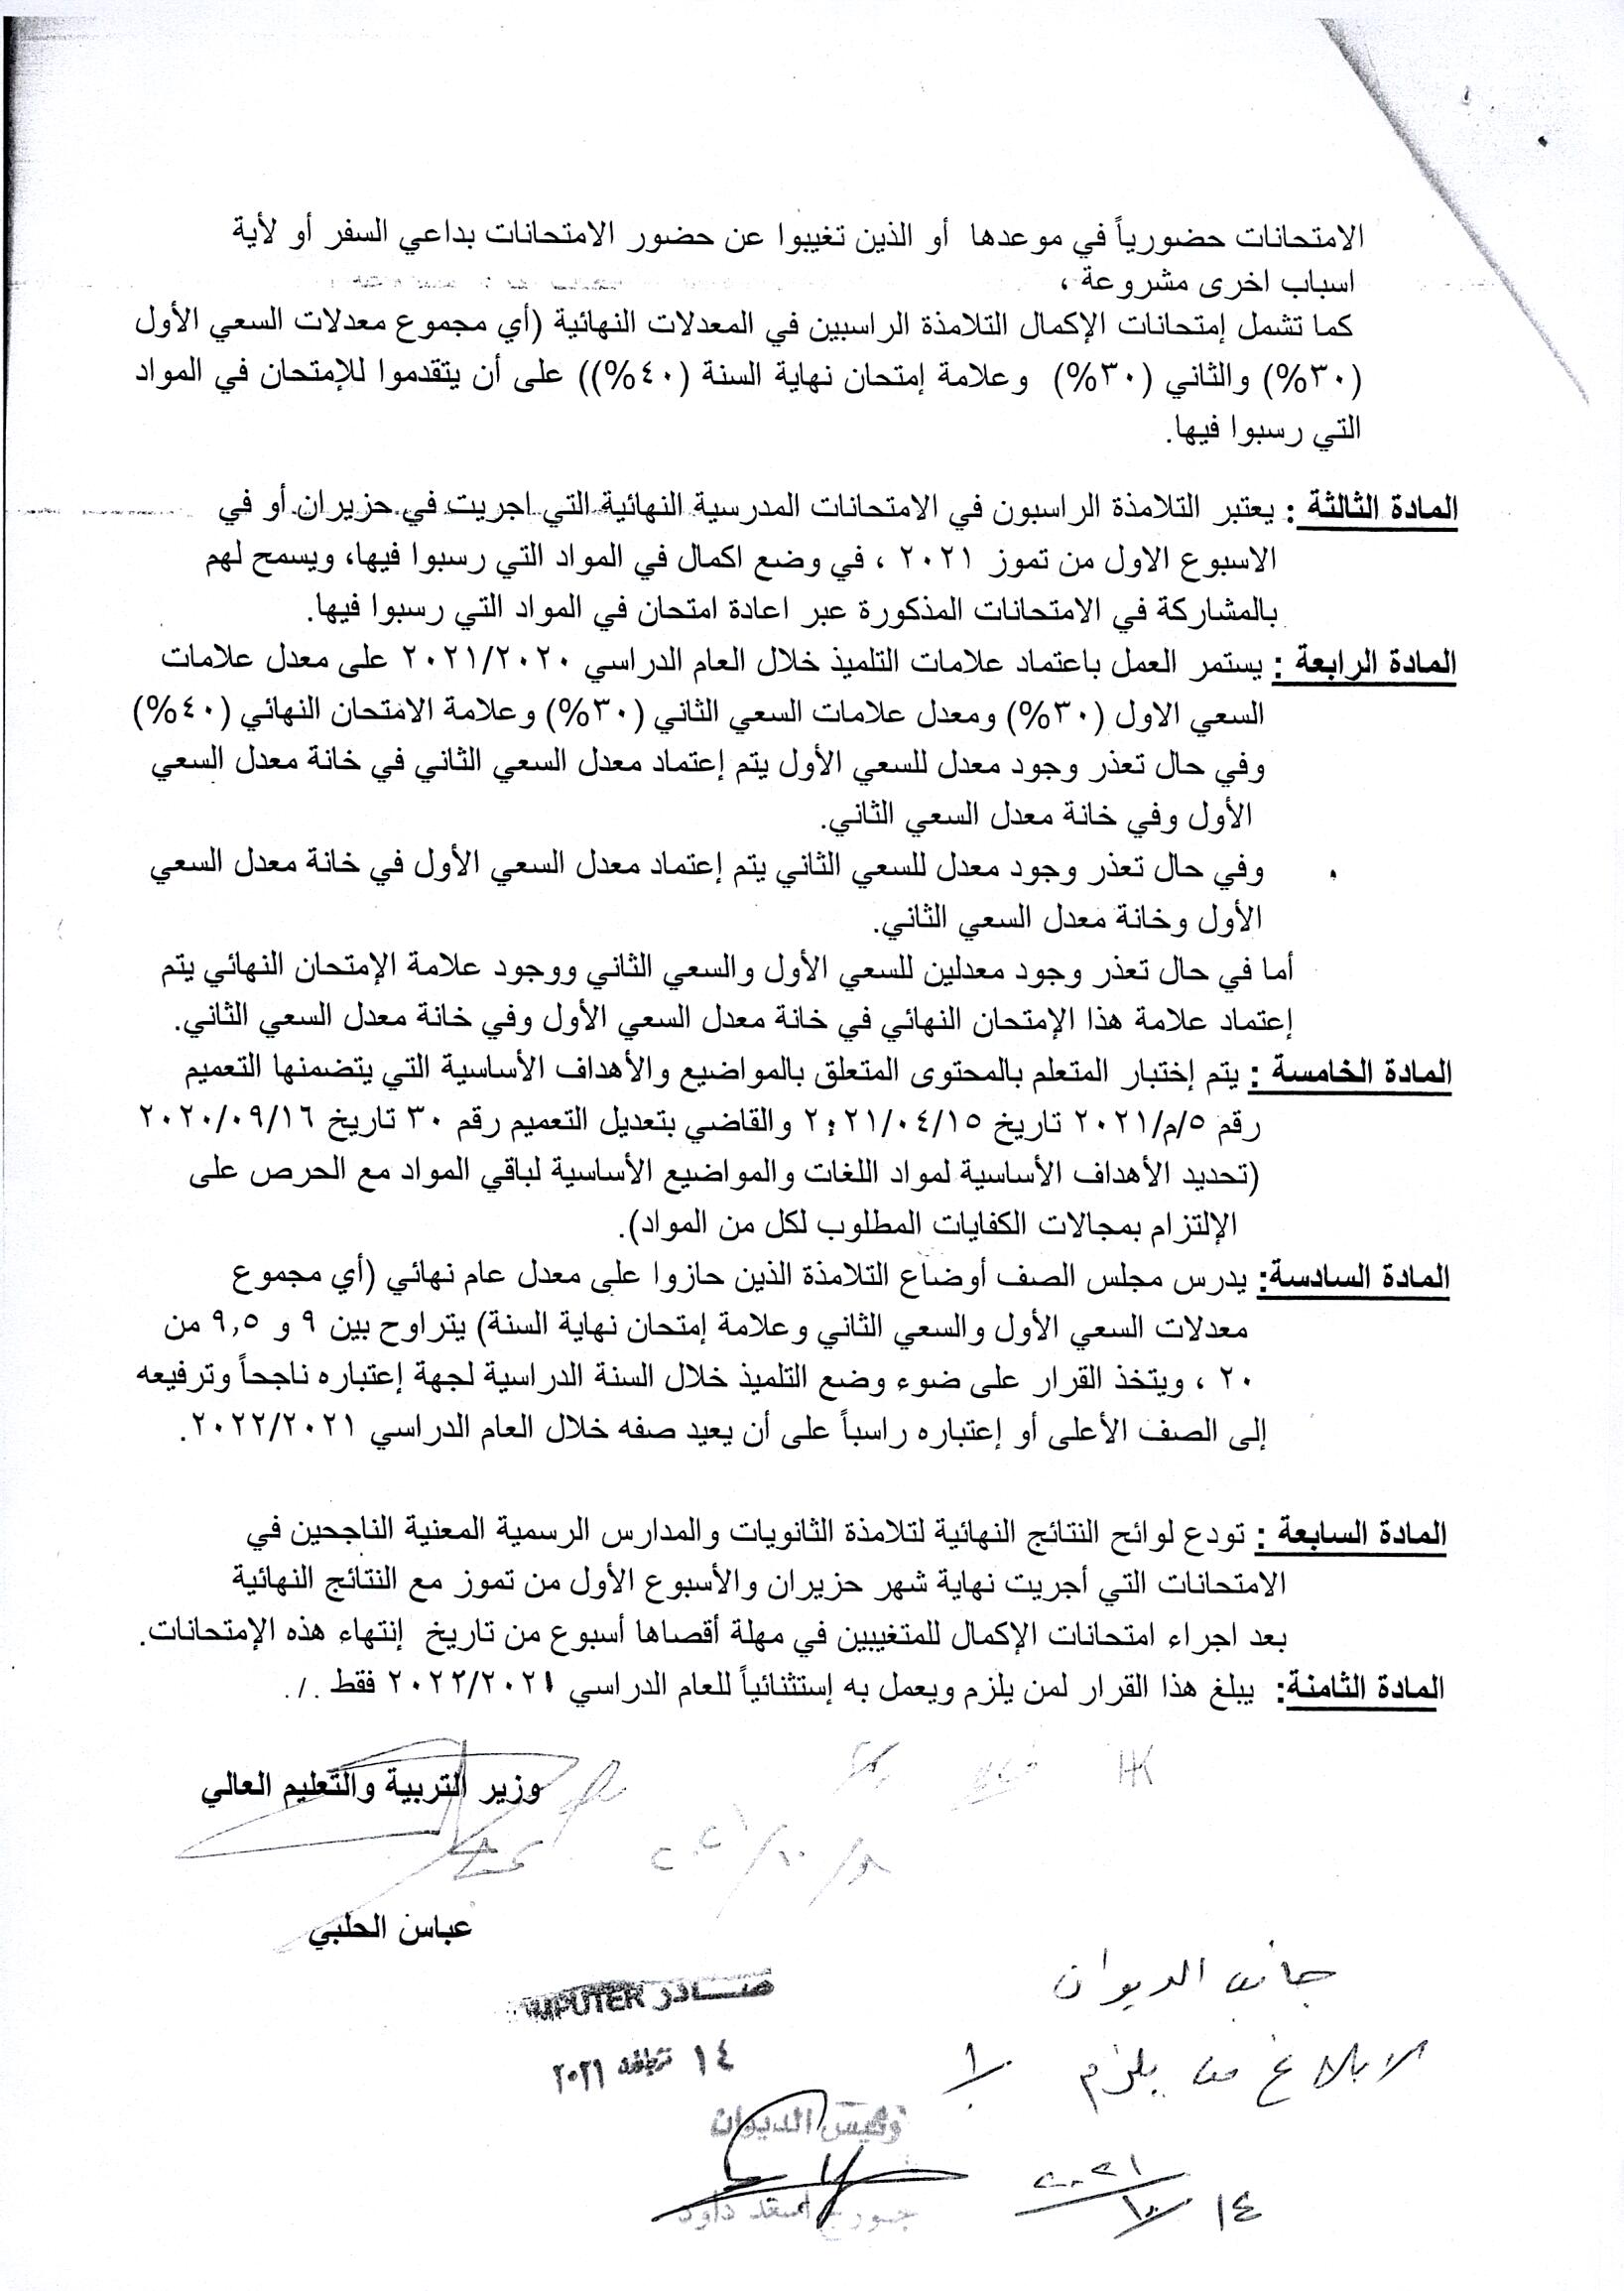 الامتحانات حضورياً في موعدها أو الذين تغيبوا عن حضور الامتحانات بداعي السفر أو لأية
اسباب اخرى مشروعة ،
كما تشمل إمتحانات الإكمال التلامذة الراسبين في المعدلات النهائية (أي مجموع معدلات السعي الأول
(٣٠%) والثاني (٣٠%) وعلامة إمتحان نهاية السنة (٤٠%)) على أن يتقدموا للإمتحان في المواد
التي رسبوا فيها.
المادة الثالثة : يعتبر التلامذة الراسبون في الامتحانات المدرسية النهائية التي اجريت في حزيران أو في
الاسبوع الاول من تموز ٢٠٢١ ، في وضع اكمال في المواد التي رسبوا فيها، ويسمح لهم
بالمشاركة في الامتحانات المذكورة عبر اعادة امتحان في المواد التي رسبوا فيها.
المادة الرابعة : يستمر العمل باعتماد علامات التلميذ خلال العام الدراسي ٢٠٢١/٢٠٢٠ على معدل علامات
السعي الاول (٣٠%) ومعدل علامات السعي الثاني (٣٠%) وعلامة الامتحان النهائي (٤٠%)
وفي حال تعذر وجود معدل للسعي الأول يتم إعتماد معدل السعي الثاني في خانة معدل السعي
الأول وفي خانة معدل السعي الثاني.
وفي حال تعذر وجود معدل للسعي الثاني يتم إعتماد معدل السعي الأول في خانة معدل السعي
الأول وخانة معدل السعي الثاني.
أما في حال تعذر وجود معدلين للسعي الأول والسعي الثاني ووجود علامة الإمتحان النهائي يتم
إعتماد علامة هذا الإمتحان النهائي في خانة معدل السعي الأول وفي خانة معدل السعي الثاني.
المادة الخامسة : يتم إختبار المتعلم بالمحتوى المتعلق بالمواضيع والأهداف الأساسية التي يتضمنها التعميم
رقم ٥/م/٢٠٢١ تاريخ ٢٠٢١/٠٤/١٥ والقاضي بتعديل التعميم رقم ٣٠ تاريخ ٢٠٢٠/٠٩/١٦
(تحديد الأهداف الأساسية لمواد اللغات والمواضيع الأساسية لباقي المواد مع الحرص على
الإلتزام بمجالات الكفايات المطلوب لكل من المواد).
المادة السادسة: يدرس مجلس الصف أوضاع التلامذة الذين حازوا على معدل عام نهائي (أي مجموع
معدلات السعي الأول والسعي الثاني وعلامة إمتحان نهاية السنة) يتراوح بين ٩ و ٩,٥ من
٢٠ ، ويتخذ القرار على ضوء وضع التلميذ خلال السنة الدراسية لجهة إعتباره ناجحاً وترفيعه
إلى الصف الأعلى أو إعتباره راسباً على أن يعيد صفه خلال العام الدراسي ٢٠٢٢/٢٠٢١.
المادة السابعة : تودع لوائح النتائج النهائية لتلامذة الثانويات والمدارس الرسمية المعنية الناجحين في
الامتحانات التي أجريت نهاية شهر حزيران والأسبوع الأول من تموز مع النتائج النهائية
بعد اجراء امتحانات الإكمال للمتغيبين في مهلة أقصاها أسبوع من تاريخ إنتهاء هذه الإمتحانات.
المادة الثامنة: يبلغ هذا القرار لمن يلزم ويعمل به إستثنائياً للعام الدراسي ٢٠٢٢/٢٠٢١ فقط ./.
وزير التربية والتعليم العالي
٢٠٢١/١٠/٨
عباس الحلبي
جانب الديوان
صادر COMPUTER
الابلاغ من يلزم
١٤ ٢٠٢١
رئيس الديوان
١٤/١٠/٢٠٢١
جورج اسعد داود